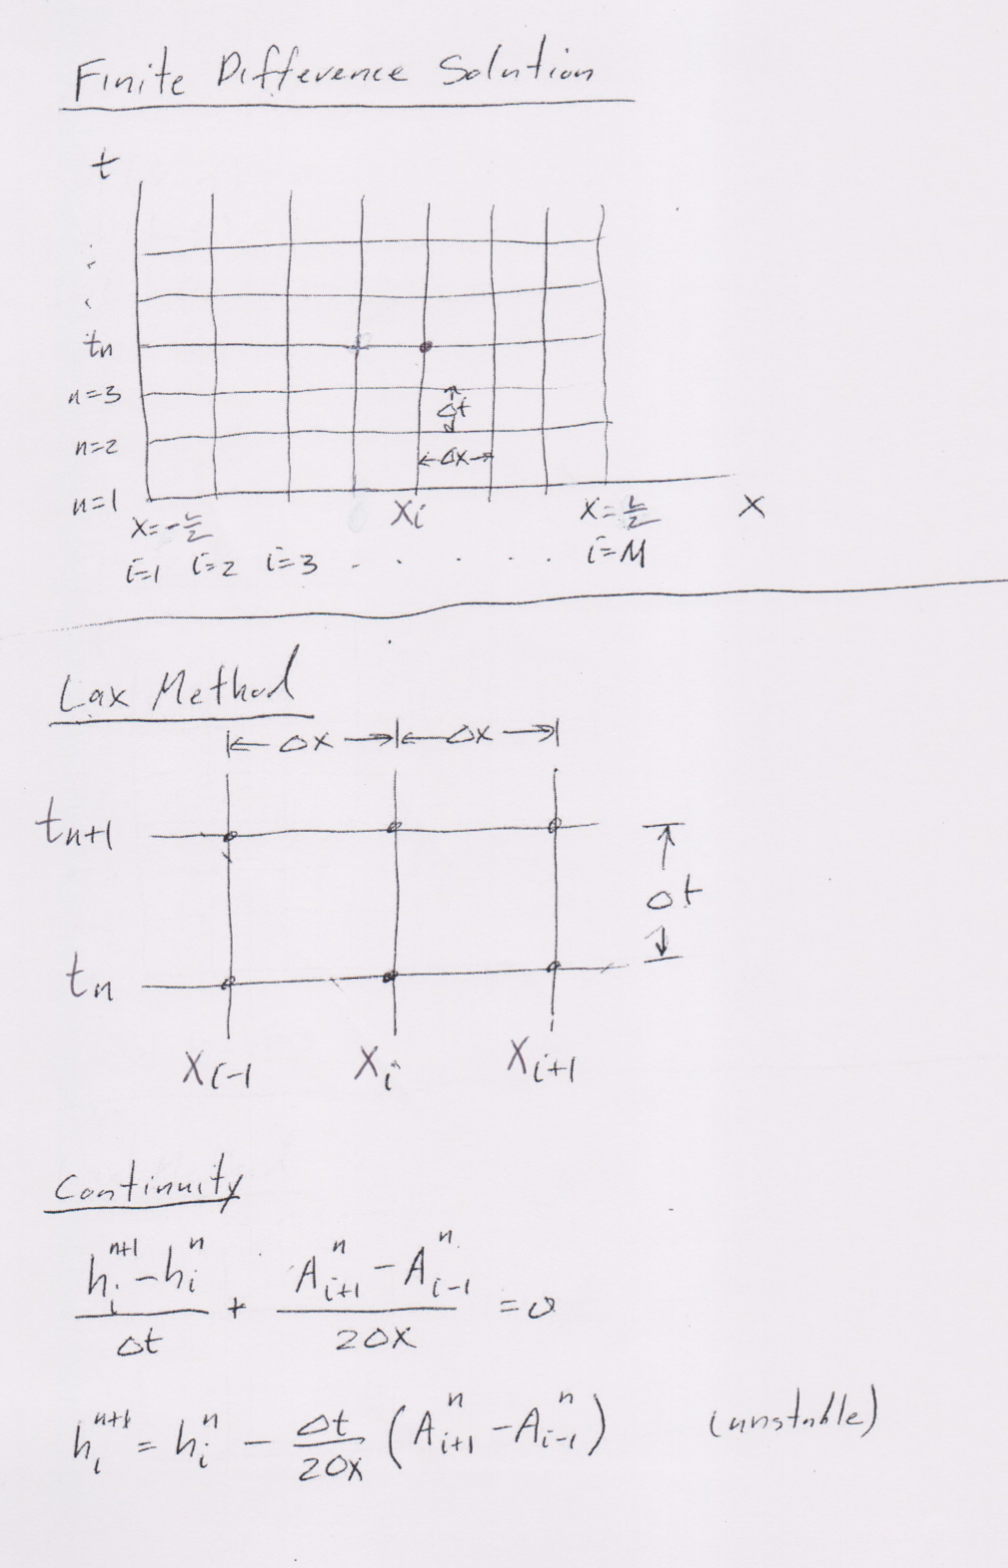 Finite Difference Solution
t
tn
n=3
Δt
n=2
Δx
n=1
x=-L/2 xi x=L/2 x
i=1 i=2 i=3 . . . . . i=M
Lax Method
Δx Δx
tn+1
Δt
tn
xi-1 xi xi+1
Continuity
(hi^n+1 - hi^n)/Δt + (A^n i+1 - A^n i-1)/2Δx = 0
hi^n+1 = hi^n - Δt/2Δx (A^n i+1 - A^n i-1) (unstable)